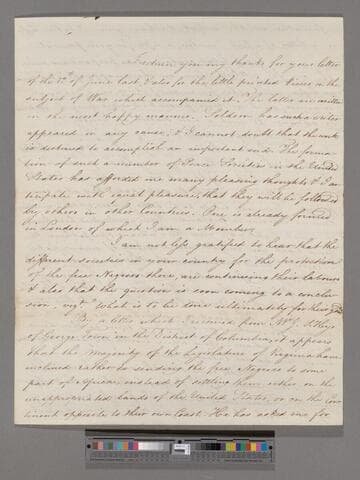 I return you my thanks for your letter
of the 5th of June last & also for the little printed Views on the
subject of War which accompanied it. The latter are written
in the most happy manner. Seldom has such a writer
appeared in any cause; & I cannot doubt that the work
is destined to accomplish an important end. The forma-
tion of such a number of Peace Societies in the United
States has afforded me many pleasing thoughts & I an-
ticipate with equal pleasure, that they will be followed
by others in other Countries. One is already formed
in London of which I am a Member.
I am not less gratified to hear that the
different societies in your country for the protection
of the free Negroes there are continuing their labours
& also that the question is soon coming to a conclu-
sion, what is to be done ultimately for their
By a letter which I received from Mr
of George Town in the District of Columbia it appears
that the Majority of the Legislature of Virginia have
inclined rather to sending the free Negroes to some
part of Africa instead of settling them either on the
unappropriated lands of the United States, or on the Con-
tinent opposite to their own Coast. He has asked me for